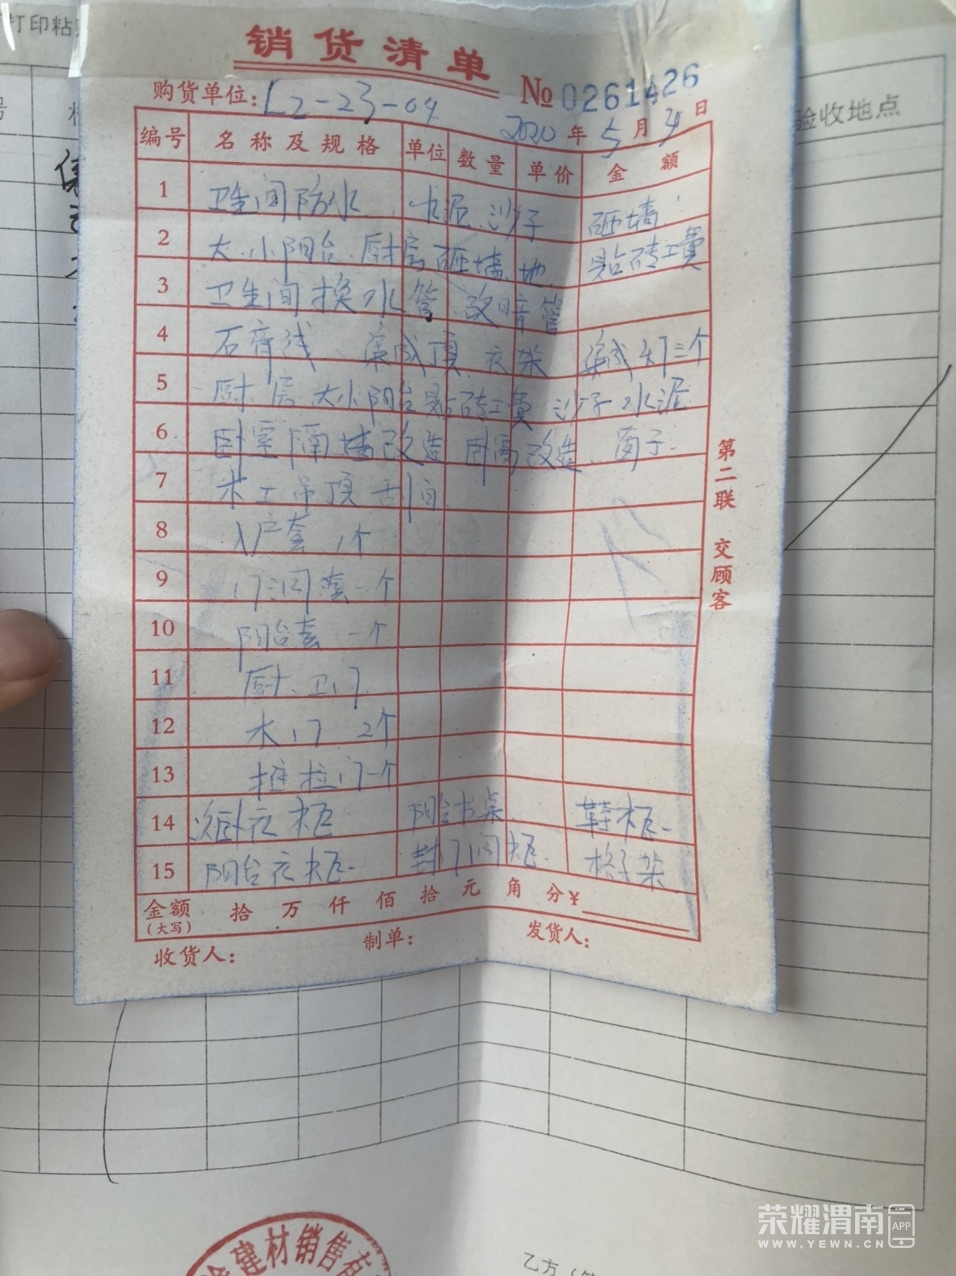 打印粘
销货清单
购货单位: L2-23-04
№ 0261426
2020 年 5 月 4 日
验收地点
编号 名称及规格 单位 数量 单价 金额
1 卫生间防水 水泥、沙子 砸墙
2 大、小阳台、厨房砸墙、地 贴砖工費
3 卫生间换水管、改暗管
4 石膏线 集成顶、衣架 集成灯三个
5 厨房大小阳台贴砖工費 沙子水泥
6 卧室隔墙改造 改造
7 木工吊顶
8 入户套 1个
9 门洞套一个
10 阳台套 一个
11 厨、卫门
12 木门 2个
13 推拉门一个
14 次卧衣柜 阳台书桌 鞋柜
15 阳台衣柜 柜 格子架
金额 拾 万 仟 佰 拾 元 角 分 ¥
(大写)
收货人: 制单: 发货人:
第二联 交顾客
建材销售有
乙方
荣耀渭南 APP
WWW.YEWN.CN